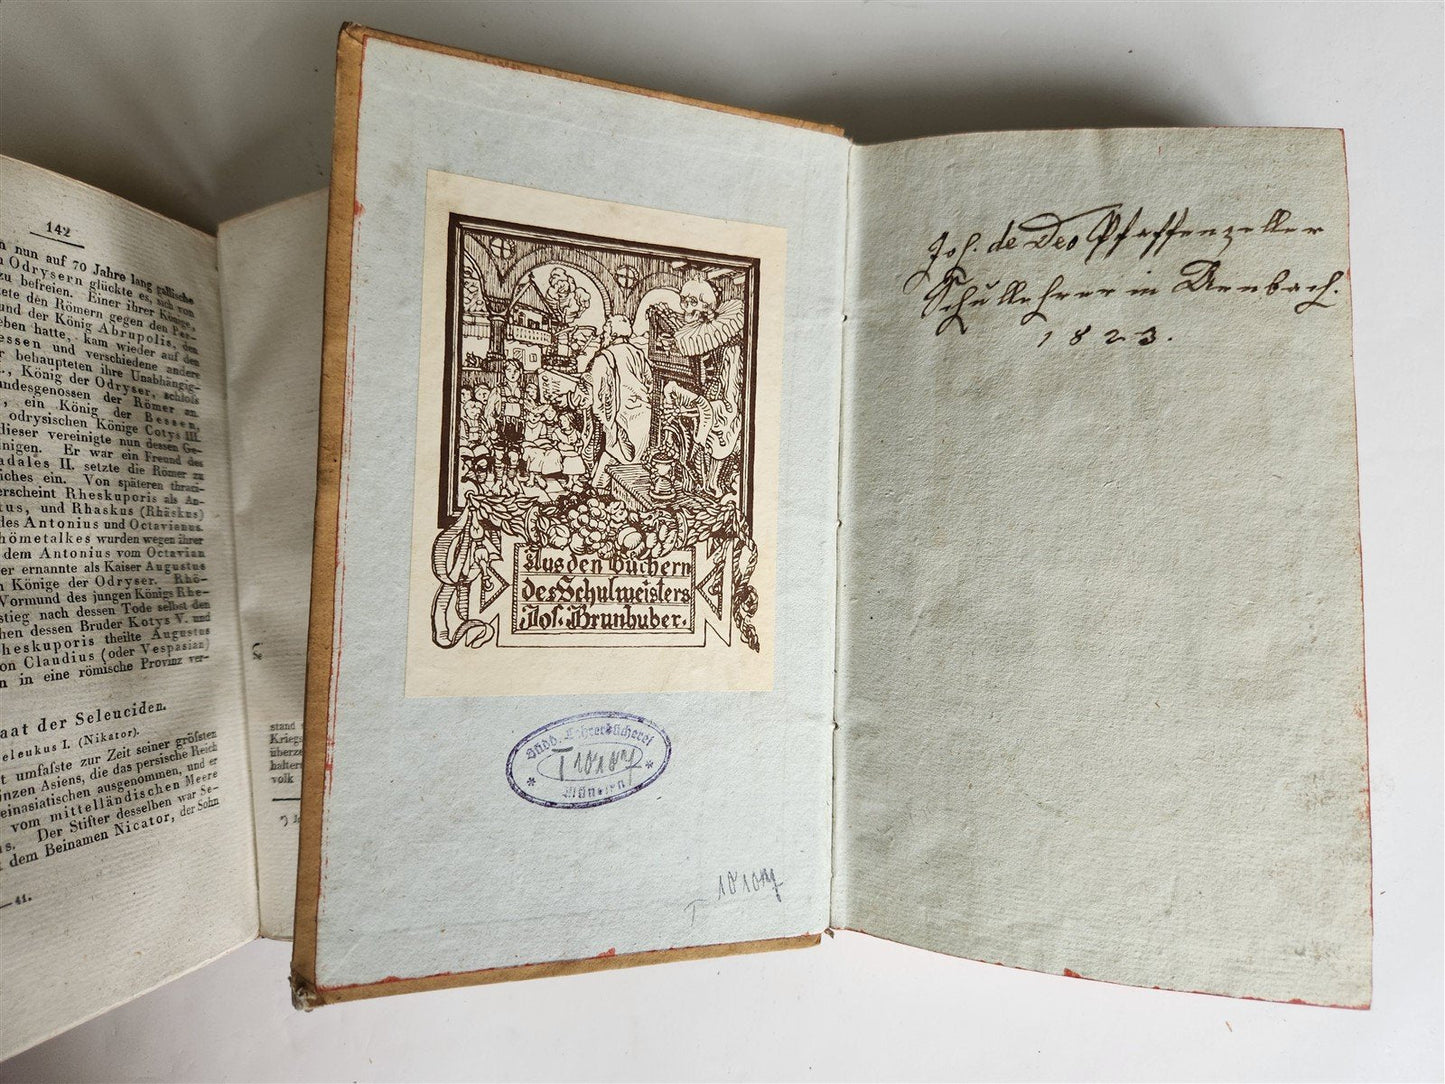 142
n nun auf 70 Jahre lang gallische
n Odrysern glückte es, sich von
zu befreien. Einer ihrer Könige,
tete den Römern gegen den Per-
und der König Abrupolis, den
eben hatte, kam wieder auf den
essen und verschiedene andere
r behaupteten ihre Unabhängig-
., König der Odryser, schloſs
ndesgenossen der Römer an.
, ein König der Bessen,
odrysischen Könige Cotys III.
dieser vereinigte nun dessen Ge-
inigen. Er war ein Freund des
adales II. setzte die Römer zu
iches ein. Von späteren thraci-
erscheint Rheskuporis als An-
tus, und Rhaskus (Rhäskus)
des Antonius und Octavianus.
hömetalkes wurden wegen ihrer
dem Antonius vom Octavian
er ernannte als Kaiser Augustus
n Könige der Odryser. Rhö-
Vormund des jungen Königs Rhe-
stieg nach dessen Tode selbst den
hen dessen Bruder Kotys V. und
heskuporis theilte Augustus
on Claudius (oder Vespasian)
n in eine römische Provinz ver-
aat der Seleuciden.
eleukus I. (Nikator).
t umfaſste zur Zeit seiner gröſsten
inzen Asiens, die das persische Reich
einasiatischen ausgenommen, und er
vom mittelländischen Meere
s. Der Stifter desselben war Se-
t dem Beinamen Nicator, der Sohn
—41.
stand
Kriegs
überze
halten
volk
Aus den Büchern
des Schulmeisters
Jos. Brunhuber.
Südd. Lehrerbücherei
T 10107
München
T 10107
Joh. de Deo Pfaffenzeller
Schullehrer in Arnbach.
1823.